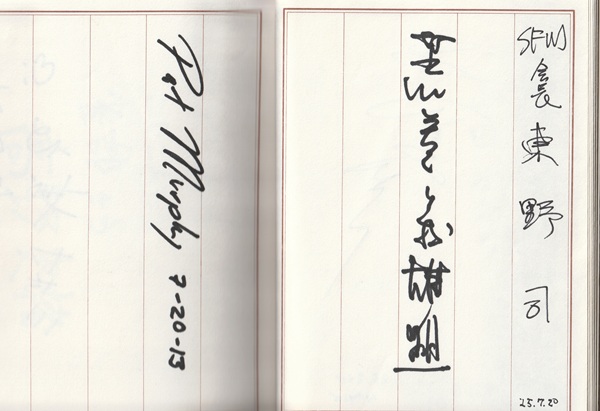 SFWJ会長東野司
25.7.20
Pat Murphy 7-20-13